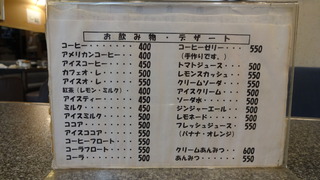 お飲み物・デザート
コーヒー・・・・・・400
アメリカンコーヒー・・400
アイスコーヒー・・・・450
カフェオ・レ・・・・・500
アイスオ・レ・・・・・550
紅茶(レモン・ミルク) 400
アイスティー・・・・・450
ミルク・・・・・・・・450
アイスミルク・・・・・500
ココア・・・・・・・・500
アイスココア・・・・・550
コーヒーフロート・・・550
コーラフロート・・・・550
コーラ・・・・・・・・500
コーヒーゼリー・・・550
(手作りです。)
トマトジュース・・・500
レモンスカッシュ・・550
クリームソーダ・・・550
アイスクリーム・・・500
ソーダ水・・・・・・500
ジンジャーエール・・500
レモネード・・・・・500
フレッシュジュース・・550
(バナナ・オレンジ)
クリームあんみつ・・600
あんみつ・・・・・・550